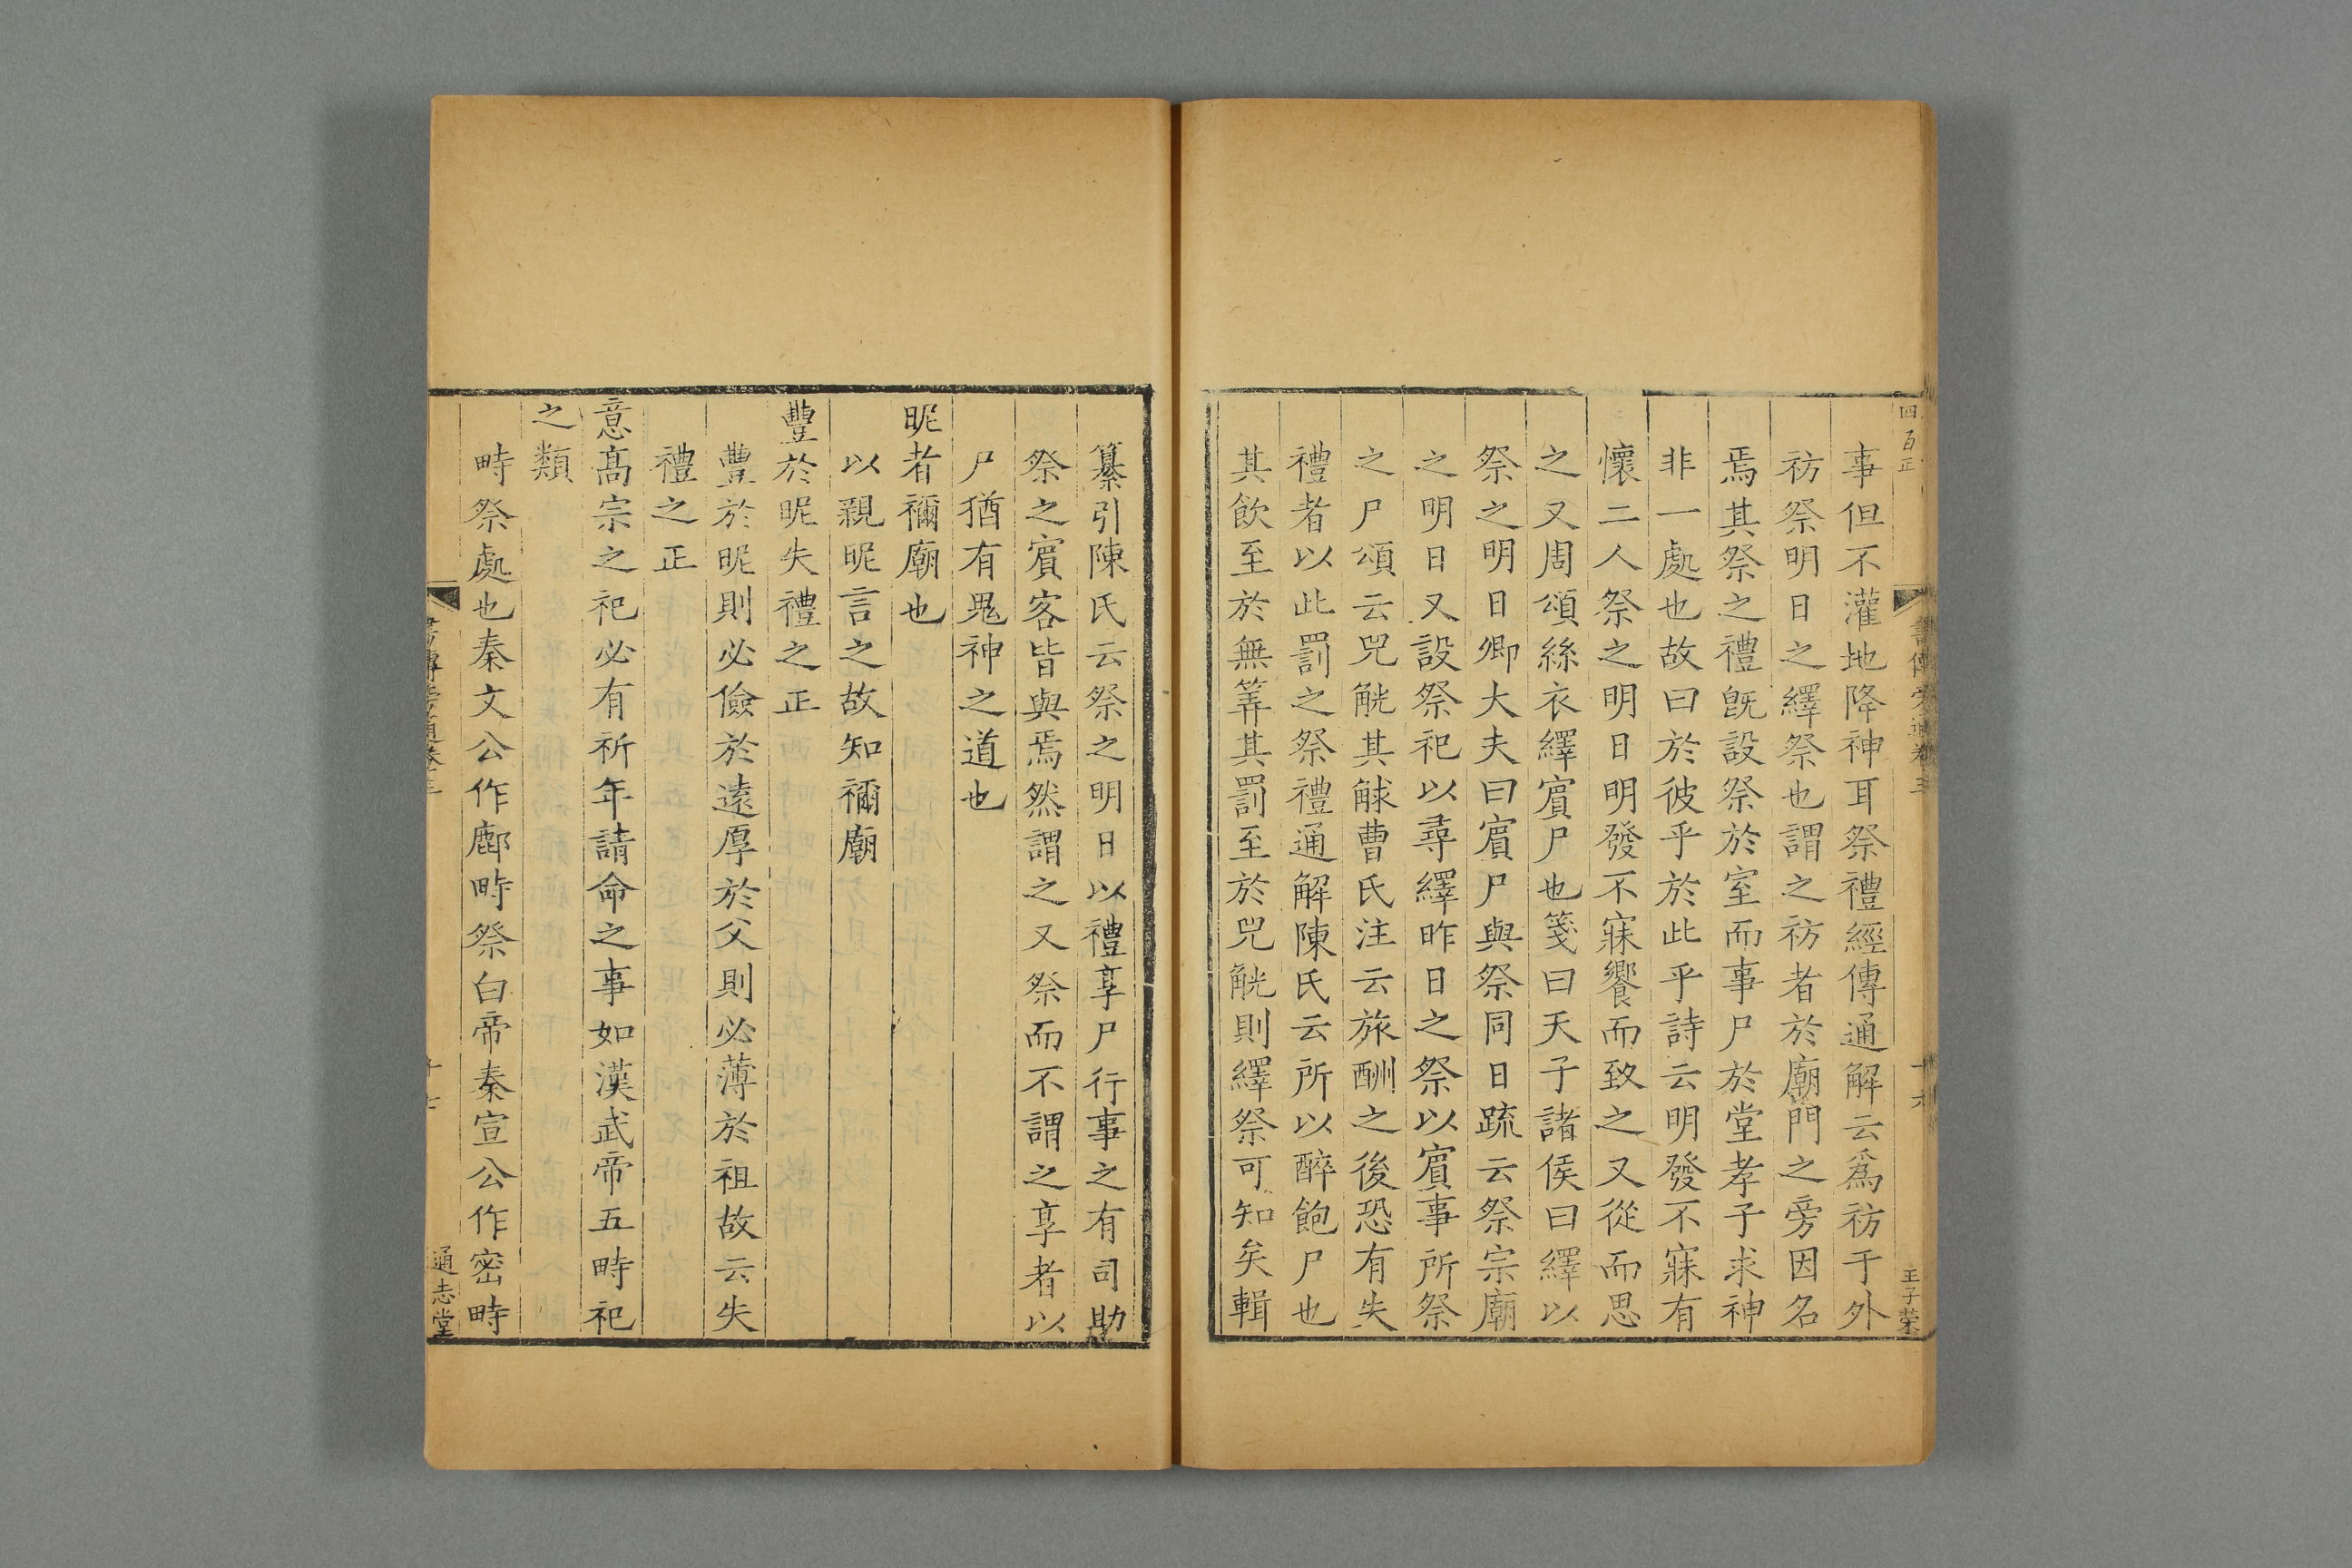 四百正
書傳旁通卷三
十六
王子榮
事但不灌地降神耳祭禮經傳通解云爲祊于外
祊祭明日之繹祭也謂之祊者於廟門之旁因名
焉其祭之禮旣設祭於室而事尸於堂孝子求神
非一處也故曰於彼乎於此乎詩云明發不寐有
懷二人祭之明日明發不寐饗而致之又從而思
之又周頌絲衣繹賓尸也箋曰天子諸侯曰繹以
祭之明日卿大夫曰賓尸與祭同日疏云祭宗廟
之明日又設祭祀以尋繹昨日之祭以賓事所祭
之尸頌云兕觥其觩曹氏注云旅酬之後恐有失
禮者以此罰之祭禮通解陳氏云所以醉飽尸也
其飲至於無筭其罰至於兕觥則繹祭可知矣輯
纂引陳氏云祭之明日以禮享尸行事之有司助
祭之賓客皆與焉然謂之又祭而不謂之享者以
尸猶有鬼神之道也
昵者禰廟也
以親昵言之故知禰廟
豐於昵失禮之正
豐於昵則必儉於遠厚於父則必薄於祖故云失
禮之正
意高宗之祀必有祈年請命之事如漢武帝五畤祀
之類
畤祭處也秦文公作鄜畤祭白帝秦宣公作密畤
書傳旁通卷三
十七
通志堂